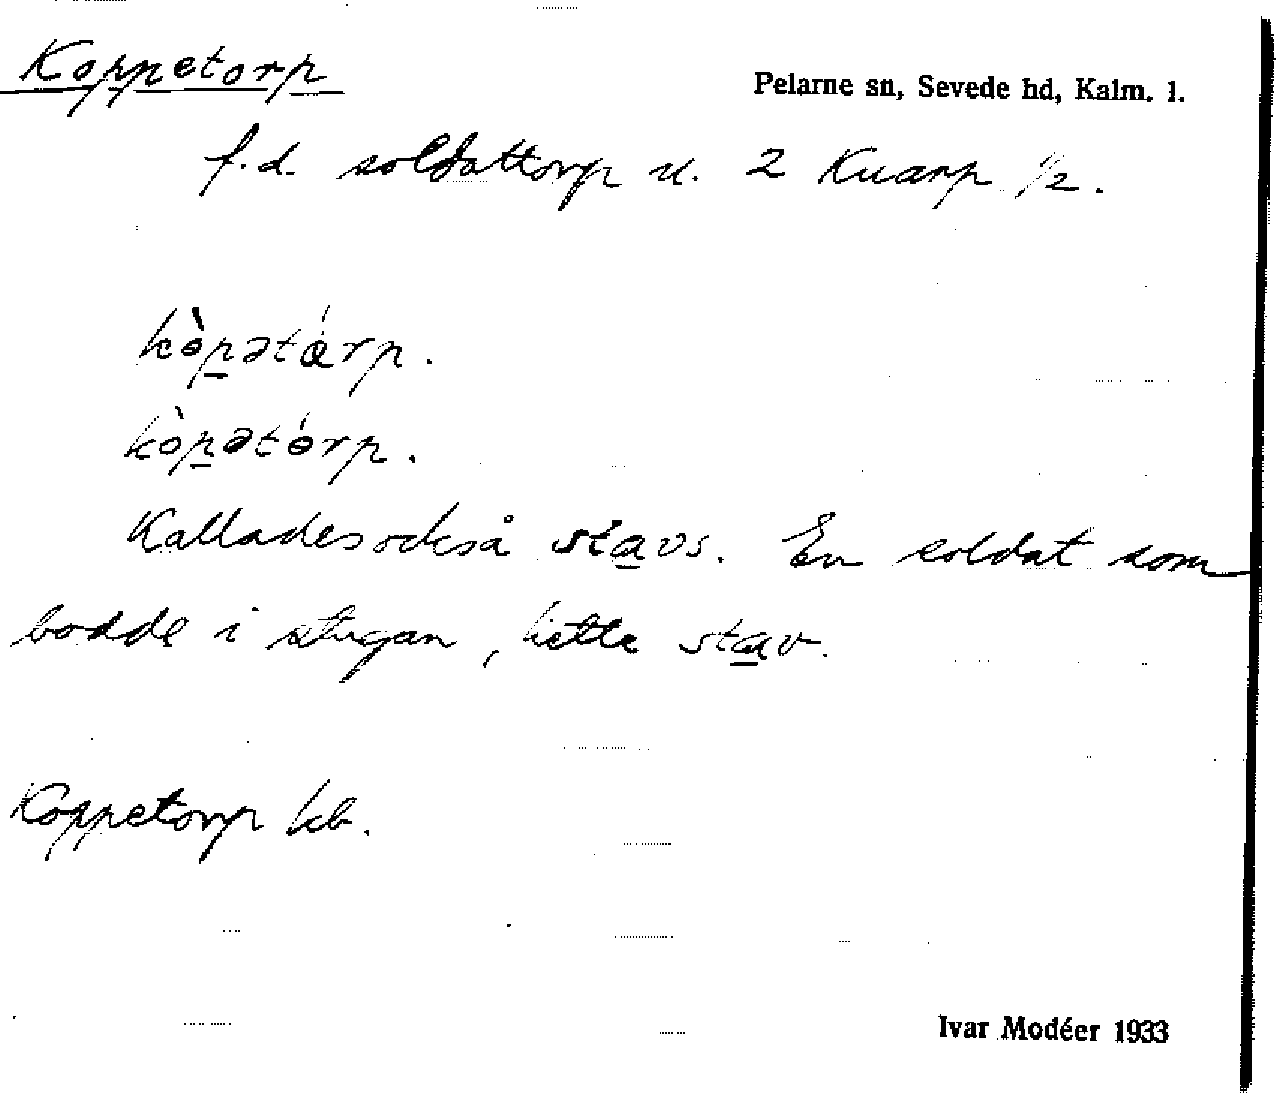 Koppetorp
Pelarne sn, Sevede hd, Kalm. l.
f.d. soldattorp u. 2 Kuarp 1/2.
kòp̲ətárp.
kòp̲ətórp.
Kallades också sta̲vs. En soldat som
bodde i stugan, hette sta̲v.
Koppetorp kb.
Ivar Modéer 1933